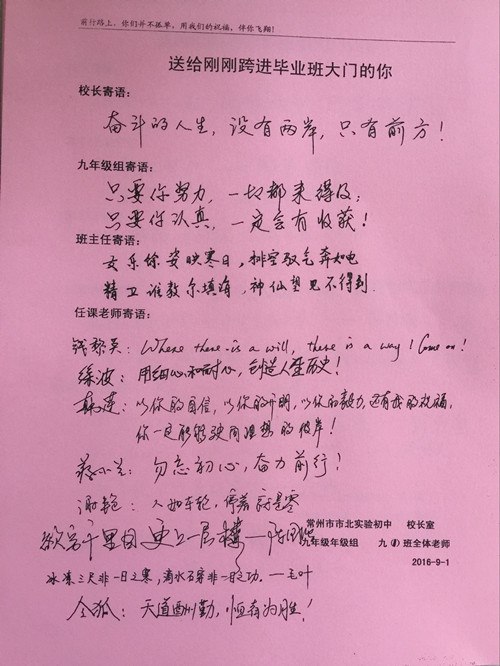 前行路上，你们并不孤单，用我们的祝福，伴你飞翔！
送给刚刚跨进毕业班大门的你
校长寄语：
奋斗的人生，没有两岸，只有前方！
九年级组寄语：
只要你努力，一切都来得及；
只要你认真，一定会有收获！
班主任寄语：
女乐徐姿映寒日，排空驭气奔如电
精卫谁教尔填海，神仙望见不得到
任课老师寄语：
钱黎英：Where there is a will, there is a way! Come on!
徐波：用细心和耐心，创造人生历史！
韩莲：以你的自信，以你的开明，以你的毅力，还有我的祝福，
你一定能够驶向理想的彼岸！
蔡小兰：勿忘初心，奋力前行！
谢艳：人如车轮，停着就是零
常州市市北实验初中 校长室
欲穷千里目 更上一层楼——
九年级年级组 九(1)班全体老师
2016-9-1
冰冻三尺非一日之寒，滴水石穿非一日之功。——毛叶
令狐：天道酬勤，恒者为胜！